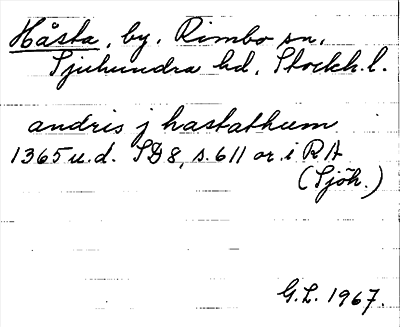 Håsta, by, Rimbo sn,
Sjuhundra hd, Stockh. l.
andris j hastathum
1365 u.d. SD 8, s. 611 or. i RA
(Sjöh.)
G.L. 1967.